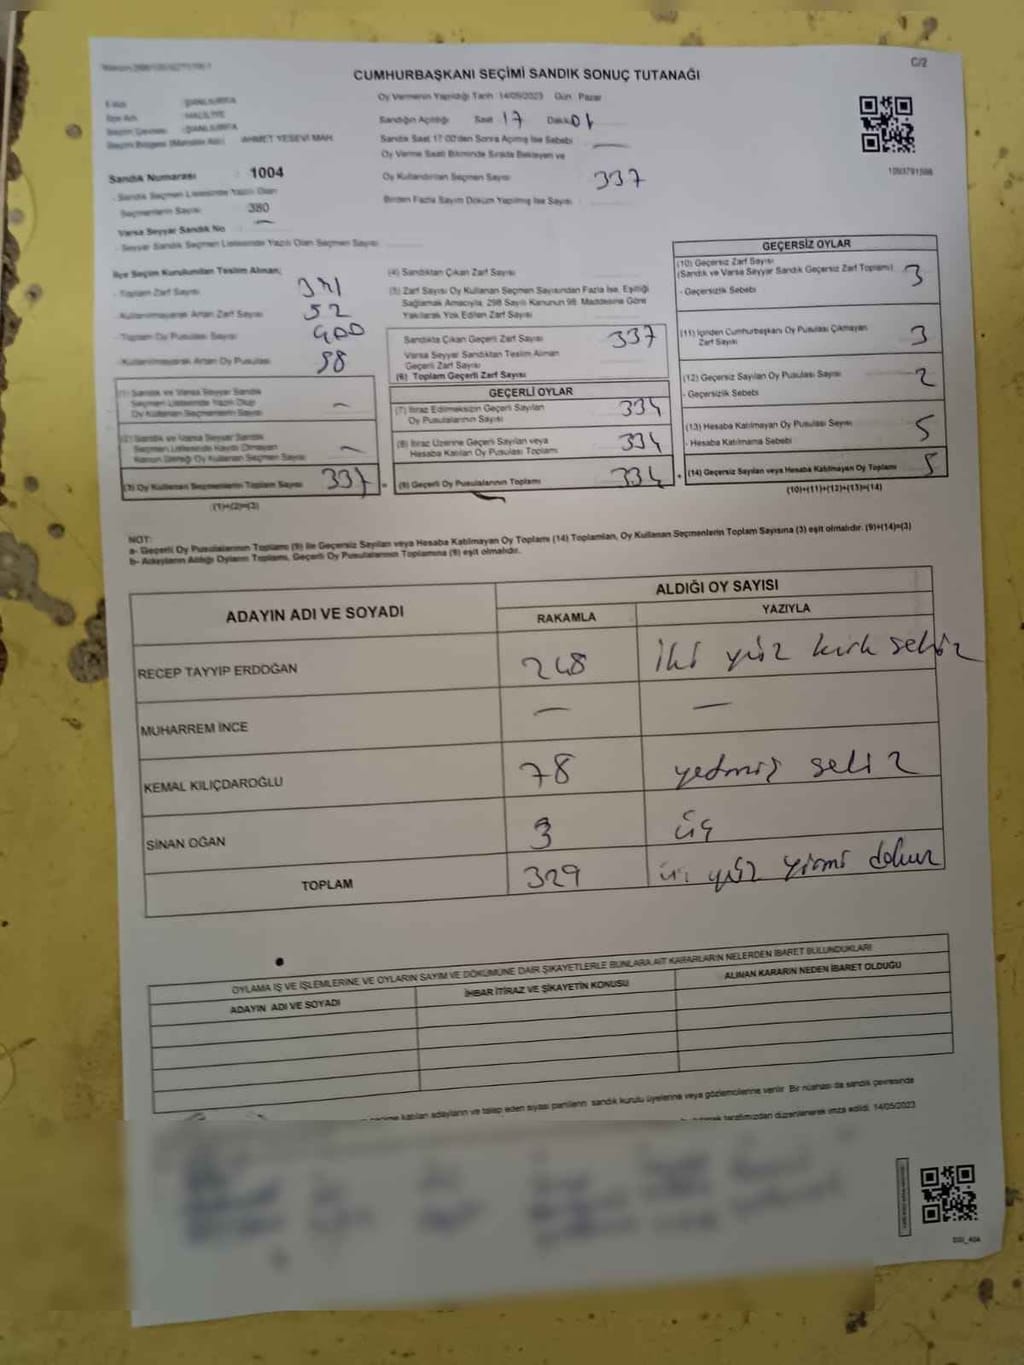 C/2
CUMHURBAŞKANI SEÇİMİ SANDIK SONUÇ TUTANAĞI
Oy Vermenin Yapıldığı Tarih :14/05/2023 Gün : Pazar
Sandığın Açıldığı Saat : 17 Dakika 01
Sandık Saat 17:00'den Sonra Açılmış İse Sebebi : —
Oy Verme Saati Bitiminde Sırada Bekleyen ve
Oy Kullandırılan Seçmen Sayısı : 337
Birden Fazla Sayım Döküm Yapılmış İse Sayısı :
1093791598
İl Adı : ŞANLIURFA
İlçe Adı : HALİLİYE
Seçim Çevresi : ŞANLIURFA
Seçim Bölgesi (Mahalle Adı) : AHMET YESEVİ MAH.
Sandık Numarası : 1004
- Sandık Seçmen Listesinde Yazılı Olan
Seçmenlerin Sayısı : 380
Varsa Seyyar Sandık No : —
- Seyyar Sandık Seçmen Listesinde Yazılı Olan Seçmen Sayısı :
İlçe Seçim Kurulundan Teslim Alınan;
- Toplam Zarf Sayısı :
- Kullanılmayarak Artan Zarf Sayısı : 52
- Toplam Oy Pusulası Sayısı : 400
- Kullanılmayarak Artan Oy Pusulası : 58
(1) Sandık ve Varsa Seyyar Sandık
Seçmen Listesinde Yazılı Olup
Oy Kullanan Seçmenlerin Sayısı : —
(2) Sandık ve Varsa Seyyar Sandık
Seçmen Listesinde Kaydı Olmayan
Kanun Gereği Oy Kullanan Seçmen Sayısı : —
(3) Oy Kullanan Seçmenlerin Toplam Sayısı : 337 =
(1)+(2)=(3)
(4) Sandıktan Çıkan Zarf Sayısı :
(5) Zarf Sayısı Oy Kullanan Seçmen Sayısından Fazla İse, Eşitliği
Sağlamak Amacıyla, 298 Sayılı Kanunun 98. Maddesine Göre
Yakılarak Yok Edilen Zarf Sayısı :
Sandıkta Çıkan Geçerli Zarf Sayısı : 337
Varsa Seyyar Sandıktan Teslim Alınan
Geçerli Zarf Sayısı :
(6) Toplam Geçerli Zarf Sayısı :
GEÇERLİ OYLAR
(7) İtiraz Edilmeksizin Geçerli Sayılan
Oy Pusulalarının Sayısı : 334
(8) İtiraz Üzerine Geçerli Sayılan veya
Hesaba Katılan Oy Pusulası Toplamı : 334
(9) Geçerli Oy Pusulalarının Toplamı : 334 +
GEÇERSİZ OYLAR
(10) Geçersiz Zarf Sayısı
(Sandık ve Varsa Seyyar Sandık Geçersiz Zarf Toplamı) : 3
- Geçersizlik Sebebi :
(11) İçinden Cumhurbaşkanı Oy Pusulası Çıkmayan
Zarf Sayısı : 3
(12) Geçersiz Sayılan Oy Pusulası Sayısı : 2
- Geçersizlik Sebebi :
(13) Hesaba Katılmayan Oy Pusulası Sayısı : 5
- Hesaba Katılmama Sebebi :
(14) Geçersiz Sayılan veya Hesaba Katılmayan Oy Toplamı : 5
(10)+(11)+(12)+(13)=(14)
NOT:
a- Geçerli Oy Pusulalarının Toplamı (9) ile Geçersiz Sayılan veya Hesaba Katılmayan Oy Toplamı (14) Toplamları, Oy Kullanan Seçmenlerin Toplam Sayısına (3) eşit olmalıdır. (9)+(14)=(3)
b- Adayların Aldığı Oyların Toplamı, Geçerli Oy Pusulalarının Toplamına (9) eşit olmalıdır.
ADAYIN ADI VE SOYADI ALDIĞI OY SAYISI
RAKAMLA YAZIYLA
RECEP TAYYIP ERDOĞAN 248 iki yüz kırk sekiz
MUHARREM İNCE — —
KEMAL KILIÇDAROĞLU 78 yedmiş sekiz
SİNAN OĞAN 3 üç
TOPLAM 329 üç yüz yirmi dokuz
OYLAMA İŞ VE İŞLEMLERİNE VE OYLARIN SAYIM VE DÖKÜMÜNE DAİR ŞİKAYETLERLE BUNLARA AİT KARARLARIN NELERDEN İBARET BULUNDUKLARI
ADAYIN ADI VE SOYADI İHBAR İTİRAZ VE ŞİKAYETİN KONUSU ALINAN KARARIN NEDEN İBARET OLDUĞU
seçime katılan adayların ve talep eden siyasi partilerin sandık kurulu üyelerine veya gözlemcilerine verilir. Bir nüshası da sandık çevresinde
tarafımızdan düzenlenerek imza edildi. 14/05/2023